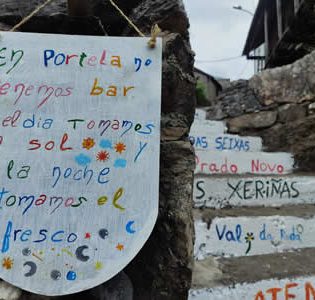 En Portela no
enemos bar
el dia Tomamos
sol y
la noche
tomamos el
fresco
AS SEIXAS
Prado Novo
S XERIÑAS
Val